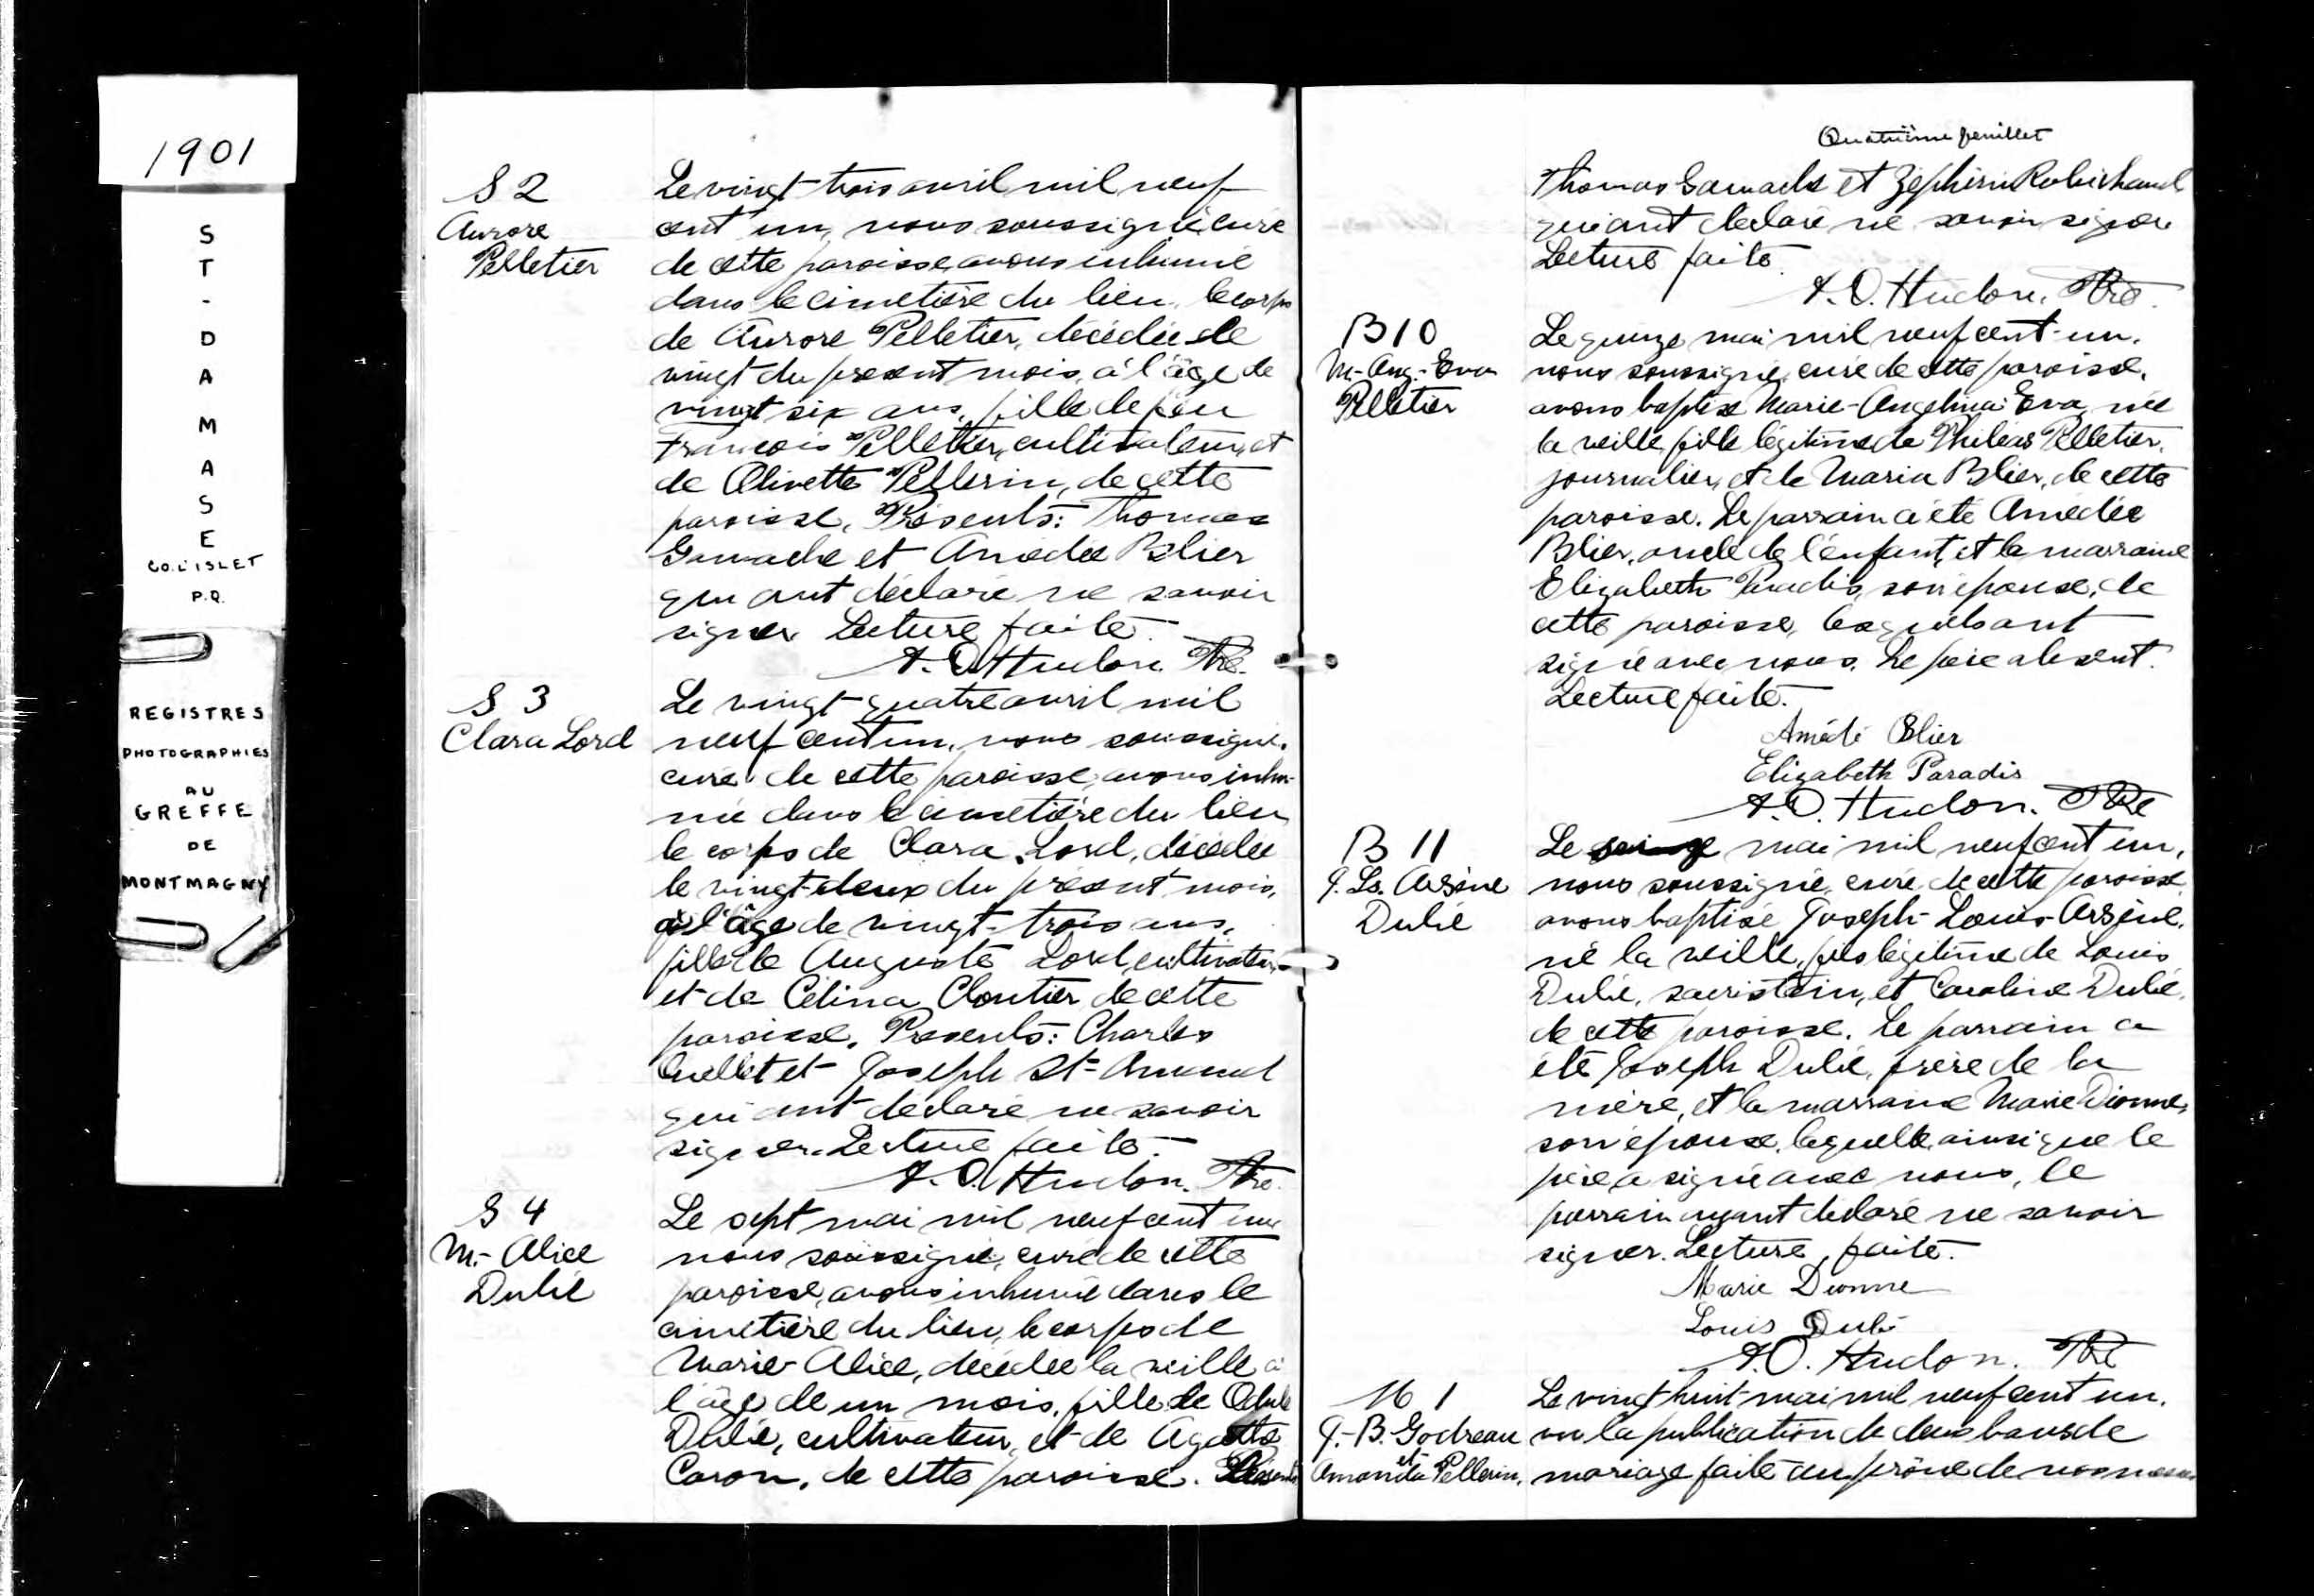 1901
ST-DAMASE
CO. L'ISLET
P.Q.
REGISTRES
PHOTOGRAPHIES
AU
GREFFE
DE
MONTMAGNY
S 2
Aurore
Pelletier
Le vingt-trois avril mil neuf
cent un, nous soussigné, curé
de cette paroisse, avons inhumé
dans le cimetière du lieu, le corps
de Aurore Pelletier, décédée le
vingt du présent mois, à l'âge de
vingt six ans, fille de feu
François Pelletier, cultivateur, et
de Olivette Pellerin, de cette
paroisse. Présents: Thomas
Gamache et Amédée Blier
qui ont déclaré ne savoir
signer. Lecture faite.
A. O. Hudon, Ptre.
S 3
Clara Lord
Le vingt-quatre avril mil
neuf cent un, nous soussigné,
curé de cette paroisse, avons inhu-
mé dans le cimetière du lieu
le corps de Clara Lord, décédée
le vingt-deux du présent mois,
à l'âge de vingt-trois ans,
fille de Auguste Lord, cultivateur
et de Célina Cloutier, de cette
paroisse. Présents: Charles
Ouellet et Joseph St-Amand
qui ont déclaré ne savoir
signer. Lecture faite.
A. O. Hudon. Ptre.
S 4
M.- Alice
Dubé
Le sept mai mil neuf cent un
nous soussigné, curé de cette
paroisse, avons inhumé dans le
cimetière du lieu, le corps de
Marie-Alice, décédée la veille à
l'âge de un mois, fille de
Dubé, cultivateur, et de Agathe
Caron, de cette paroisse. Présents
Quatrième feuillet
Thomas Gamache et Zéphirin Robichaud
qui ont déclaré ne savoir signer
Lecture faite.
A. O. Hudon, Ptre.
B 10
M.-Ang.-Eva
Pelletier
Le quinze mai mil neuf cent-un,
nous soussigné, curé de cette paroisse,
avons baptisé Marie-Angelina-Eva, née
la veille, fille légitime de Philéas Pelletier,
journalier, et de Maria Blier, de cette
paroisse. Le parrain a été Amédée
Blier, oncle de l'enfant, et la marraine
Elizabeth Paradis, son épouse, de
cette paroisse, lesquels ont
signé avec nous. Le père absent.
Lecture faite.
Amédé Blier
Elizabeth Paradis
A. O. Hudon. Ptre
B 11
J. Ls. Arsène
Dubé
Le mai mil neuf cent un,
nous soussigné, curé de cette paroisse
avons baptisé Joseph-Louis-Arsène,
né la veille, fils légitime de Louis
Dubé, sacristain, et Caroline Dubé,
de cette paroisse. Le parrain a
été Joseph Dubé, frère de la
mère, et la marraine Marie Dionne,
son épouse, laquelle ainsi que le
père a signé avec nous, le
parrain ayant déclaré ne savoir
signer. Lecture faite.
Marie Dionne
Louis Dubé
A. O. Hudon. Ptre
M 1
J.-B. Godreau
et
Amanda Pellerin.
Le vingt huit mai mil neuf cent un,
vu la publication de deux bans de
mariage faite au prône de nos messes